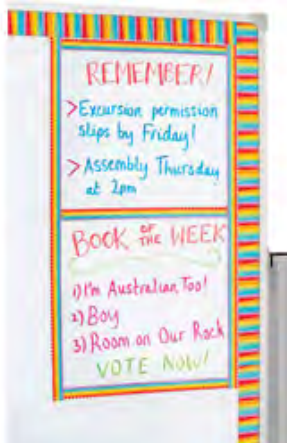 REMEMBER!
>Excursion permission
slips by Friday!
>Assembly Thursday
at 2pm
BOOK OF THE WEEK
1) I'm Australian, Too!
2) Boy
3) Room on Our Rock
VOTE NOW!